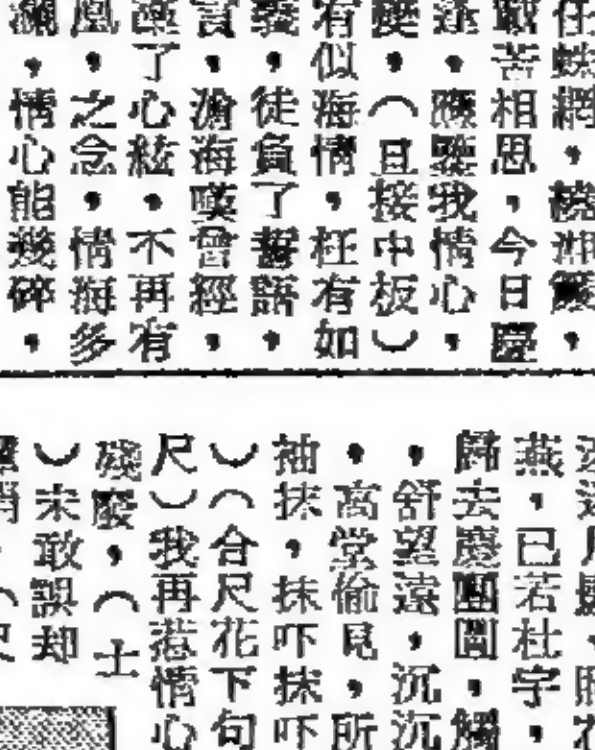 任　網，桡湖
戰苦相思，今日慶
逢，應鑒我情心，
變，（且接中板）
有似海情，枉有如
義，徒負了誓語，
言，滄海嘆曾經，
薄了心絃，不再有
凰，之念，情海多
瀾，情心能幾碎，
燕，已若杜宇，
歸去慶團圓，觸
，舒望遠，沉沉
，高堂偷見，所
袖抹，抹吓抹吓
）（合尺花下句
尺）我再惹情心
殘廢，（士
）未敢誤却